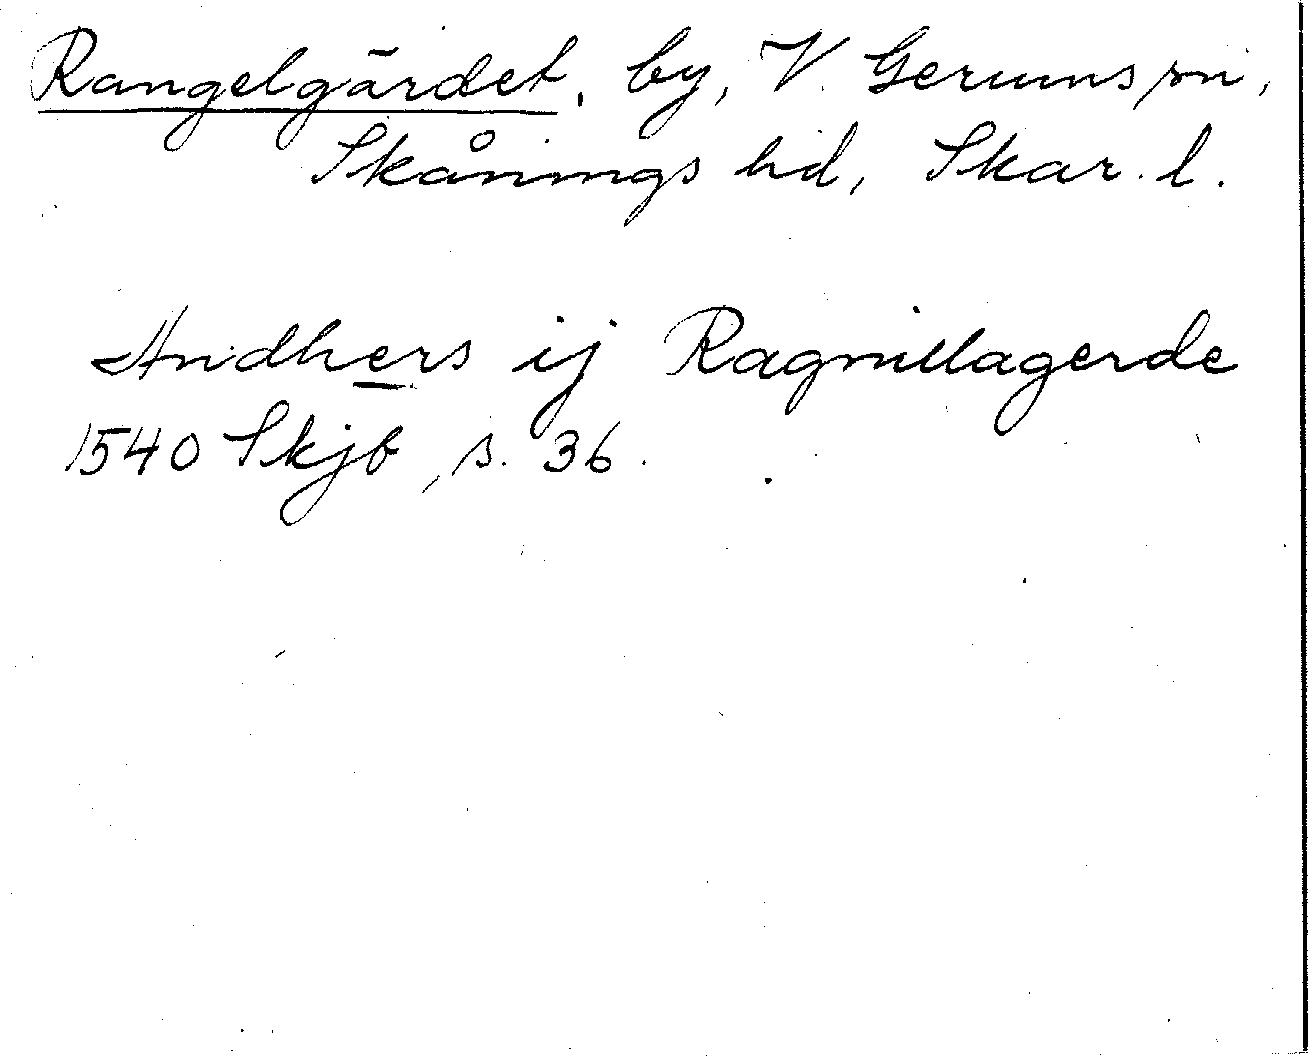 Rangelgärdet, by, V. Gerums sn,
Skånings hd, Skar. l.
Andhers ij Ragnillagerde
1540 Skjb, s. 36.